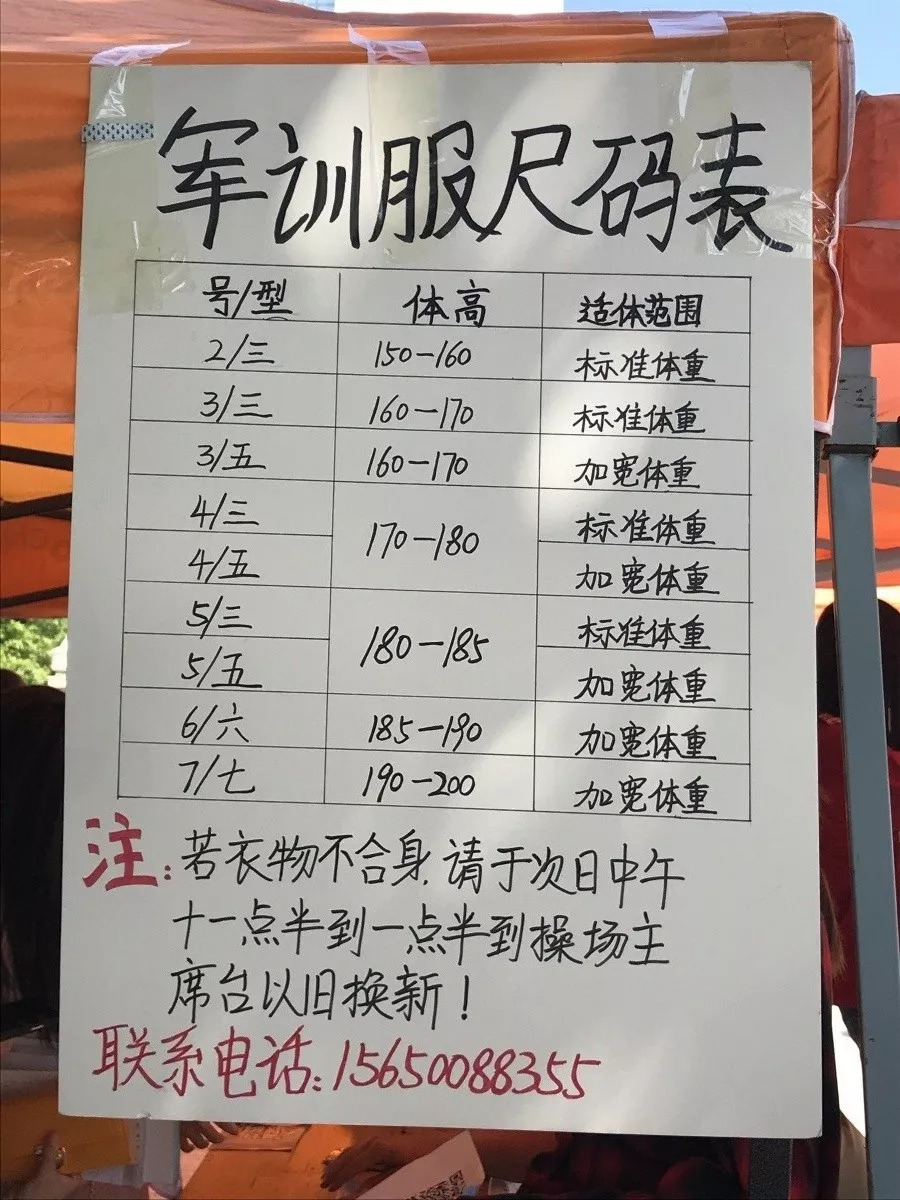 军训服尺码表
号/型 体高 适体范围
2/三 150-160 标准体重
3/三 160-170 标准体重
3/五 160-170 加宽体重
4/三 170-180 标准体重
4/五 加宽体重
5/三 180-185 标准体重
5/五 加宽体重
6/六 185-190 加宽体重
7/七 190-200 加宽体重
注:若衣物不合身,请于次日中午
十一点半到一点半到操场主
席台以旧换新!
联系电话:15650088355